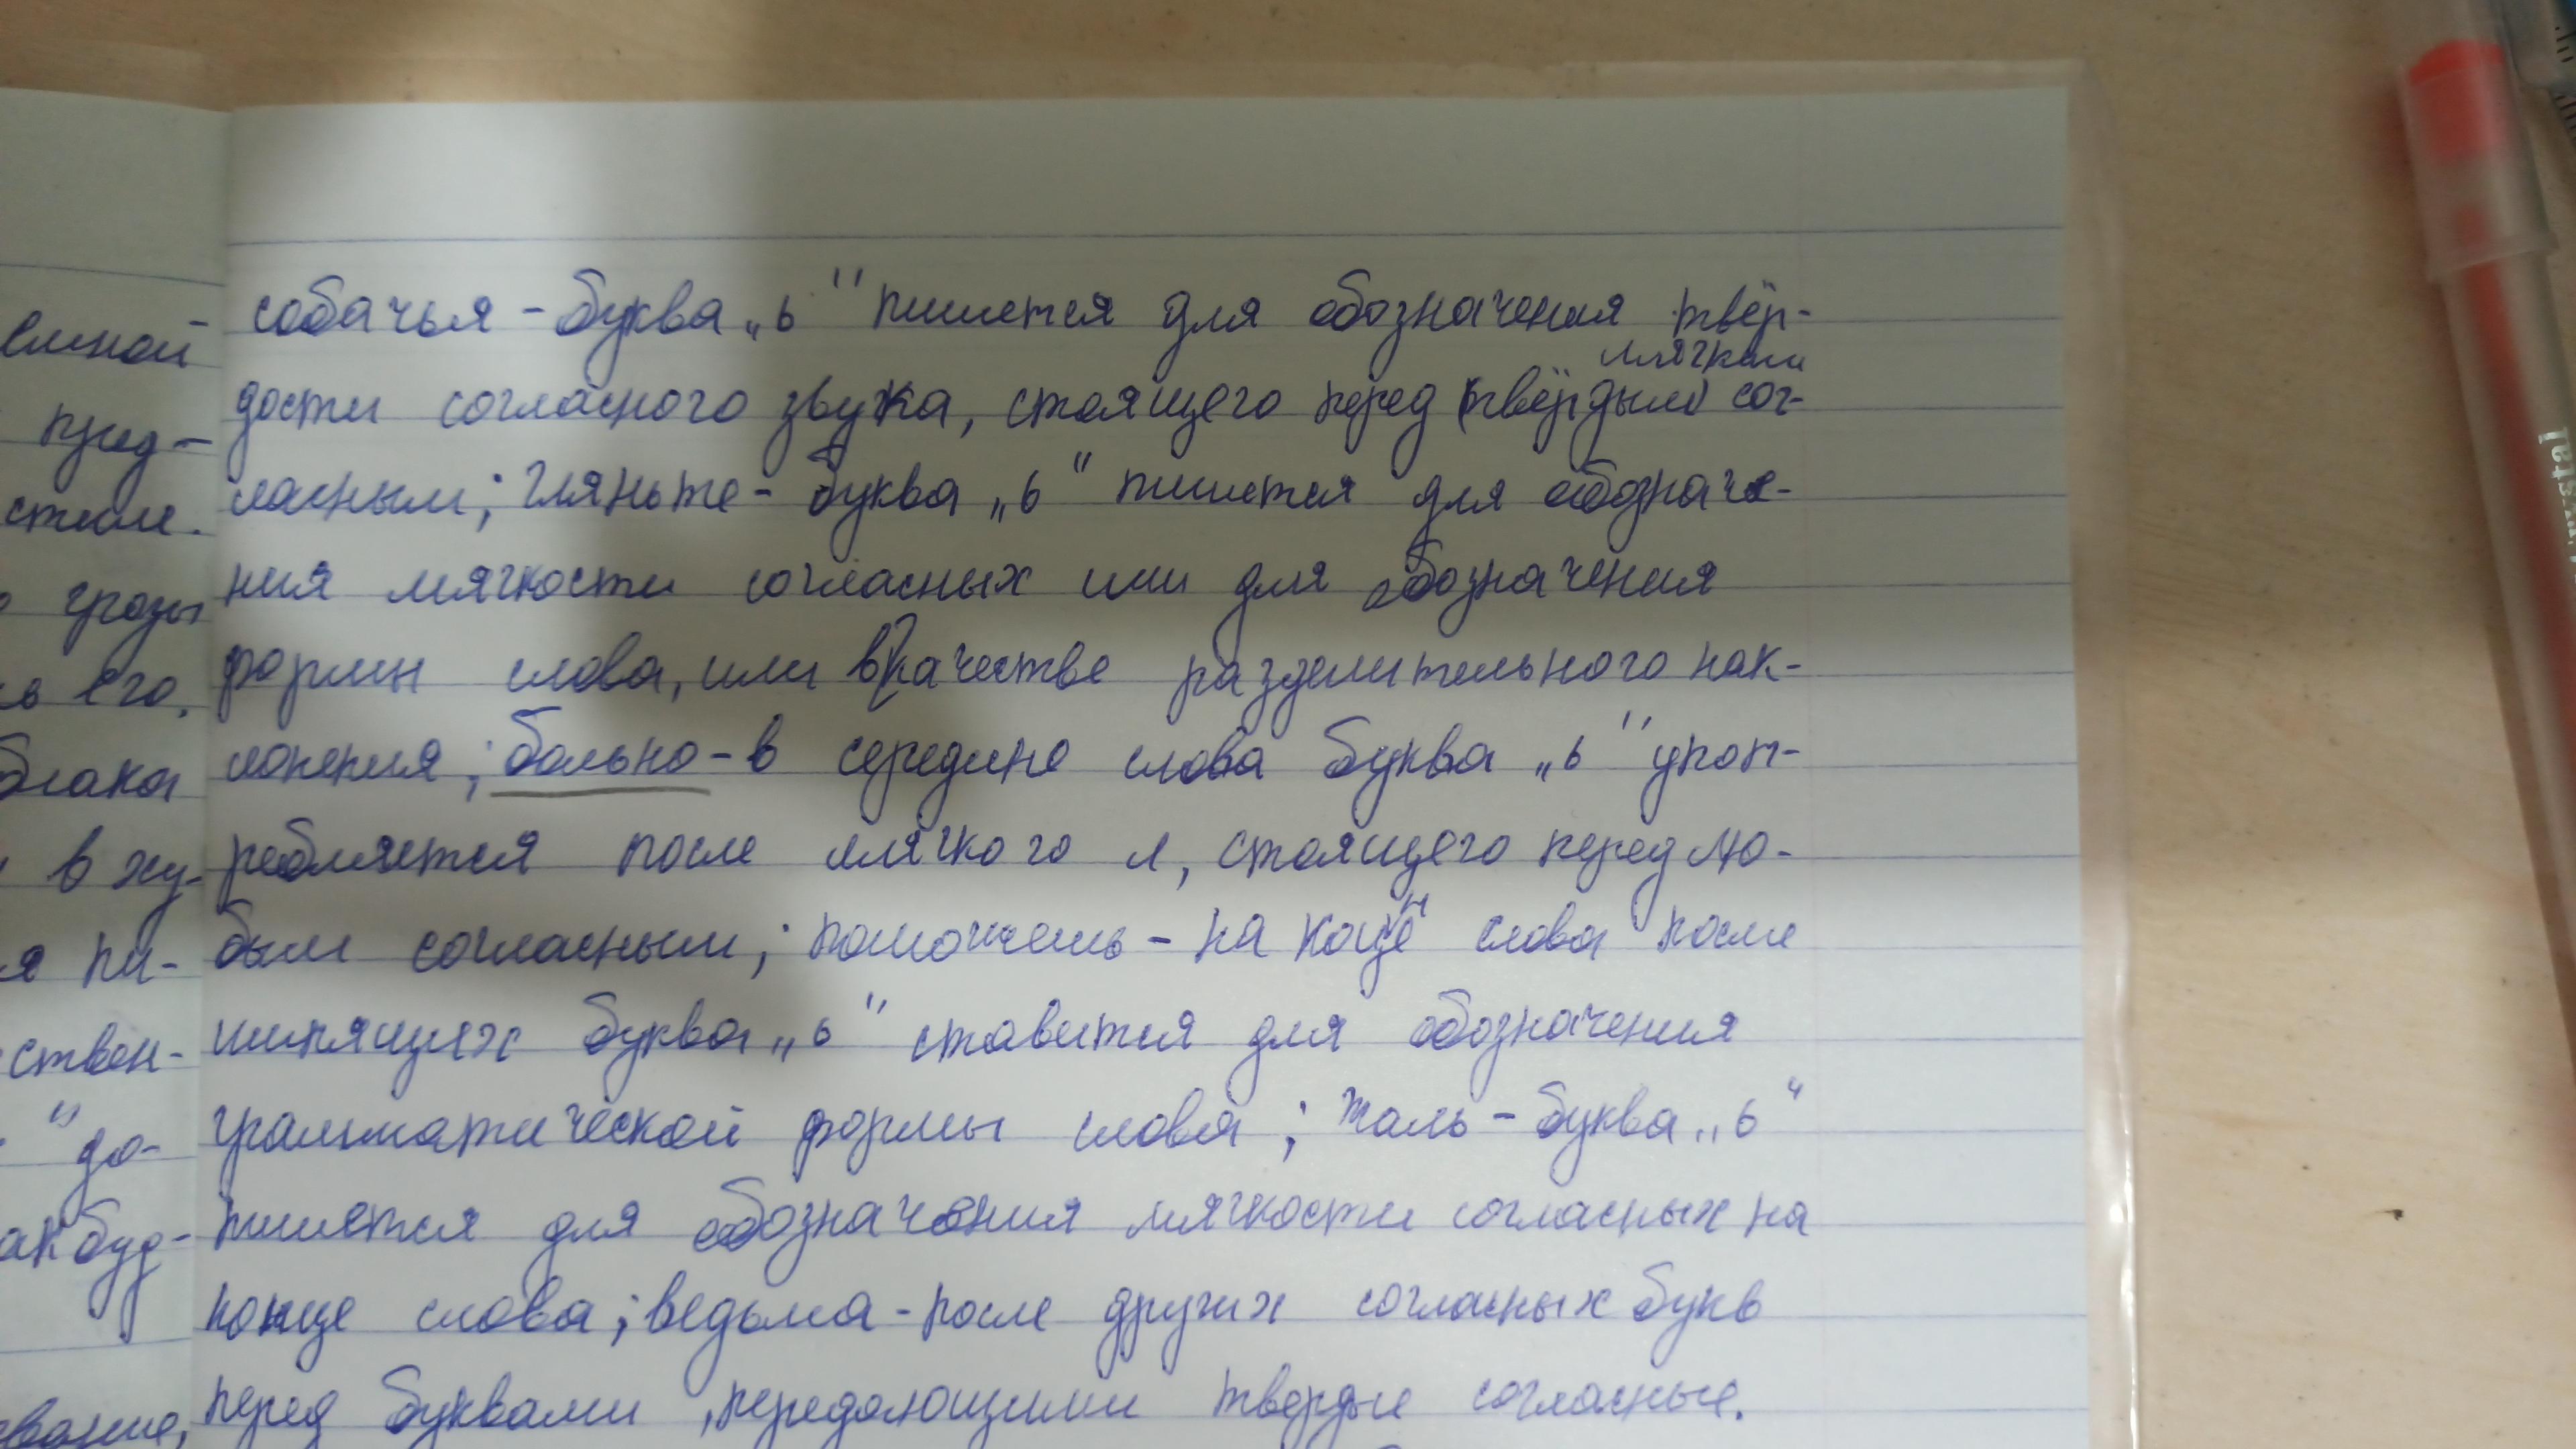 собачья - буква „ь" пишется для обозначения твёр-
мягким
дости согласного звука, стоящего перед (твёрдым) сог-
ласным; гляньте - буква „ь" пишется для обозначе-
ния мягкости согласных или для обозначения
формы слова, или в качестве разделительного нак-
лонения; больно - в середине слова буква „ь" упот-
ребляется после мягкого л, стоящего перед лю-
бым согласным; поможешь - на коцне слова после
шипящих буква „ь" ставится для обозначения
грамматической формы слова; жаль - буква „ь"
пишется для обозначения мягкости согласных на
конце слова; ведьма - после других согласных букв
перед буквами, передающими твердые согласные.
пред-
грозы
ь его.
в жу-
я пи-
ствен-
" до-
ак буд-